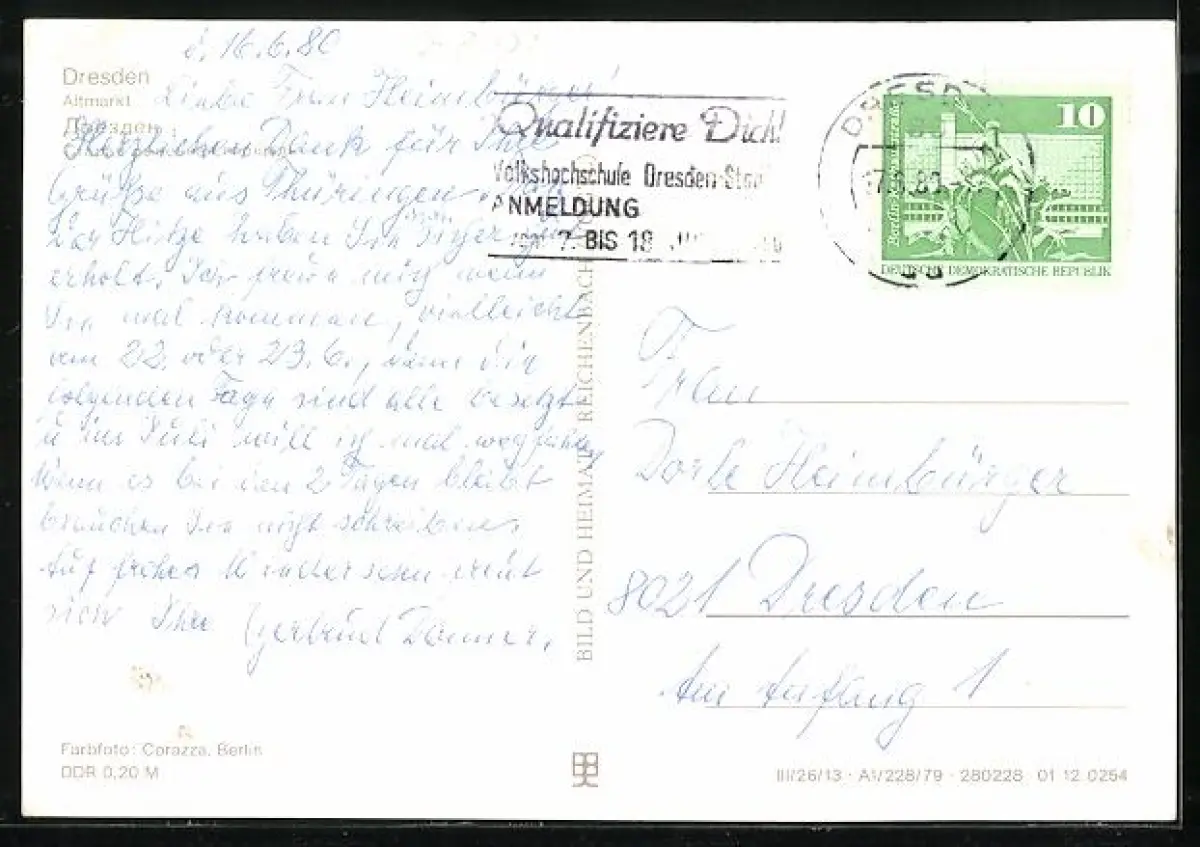 d. 16.6.80
Dresden
Altmarkt
Дрезден
Liebe Frau Heimbürger!
Herzlichen Dank für Ihre
Grüße aus Thüringen.
der Hitze haben Sie
erholt. Ich freue mich wenn
Sie mal kommen, vielleicht
am 22. oder 23.6., denn die
folgenden Tage sind alle besetzt
u. im Juli will ich mal wegfahren
Wenn es bei den 2 Tagen bleibt
brauchen Sie nicht schreiben.
Auf frohes Wiedersehen freut
sich Ihre Gertrud Donner.
Farbfoto: Corazza, Berlin
DDR 0,20 M
BILD UND HEIMAT REICHENBACH
Qualifiziere Dich!
Volkshochschule Dresden-
ANMELDUNG
7. BIS 18.
10
DEUTSCHE DEMOKRATISCHE REPUBLIK
Frau
Dorle Heimbürger
8021 Dresden
Am Anfang 1
III/26/13 · A1/228/79 · 280228 · 01 12 0254